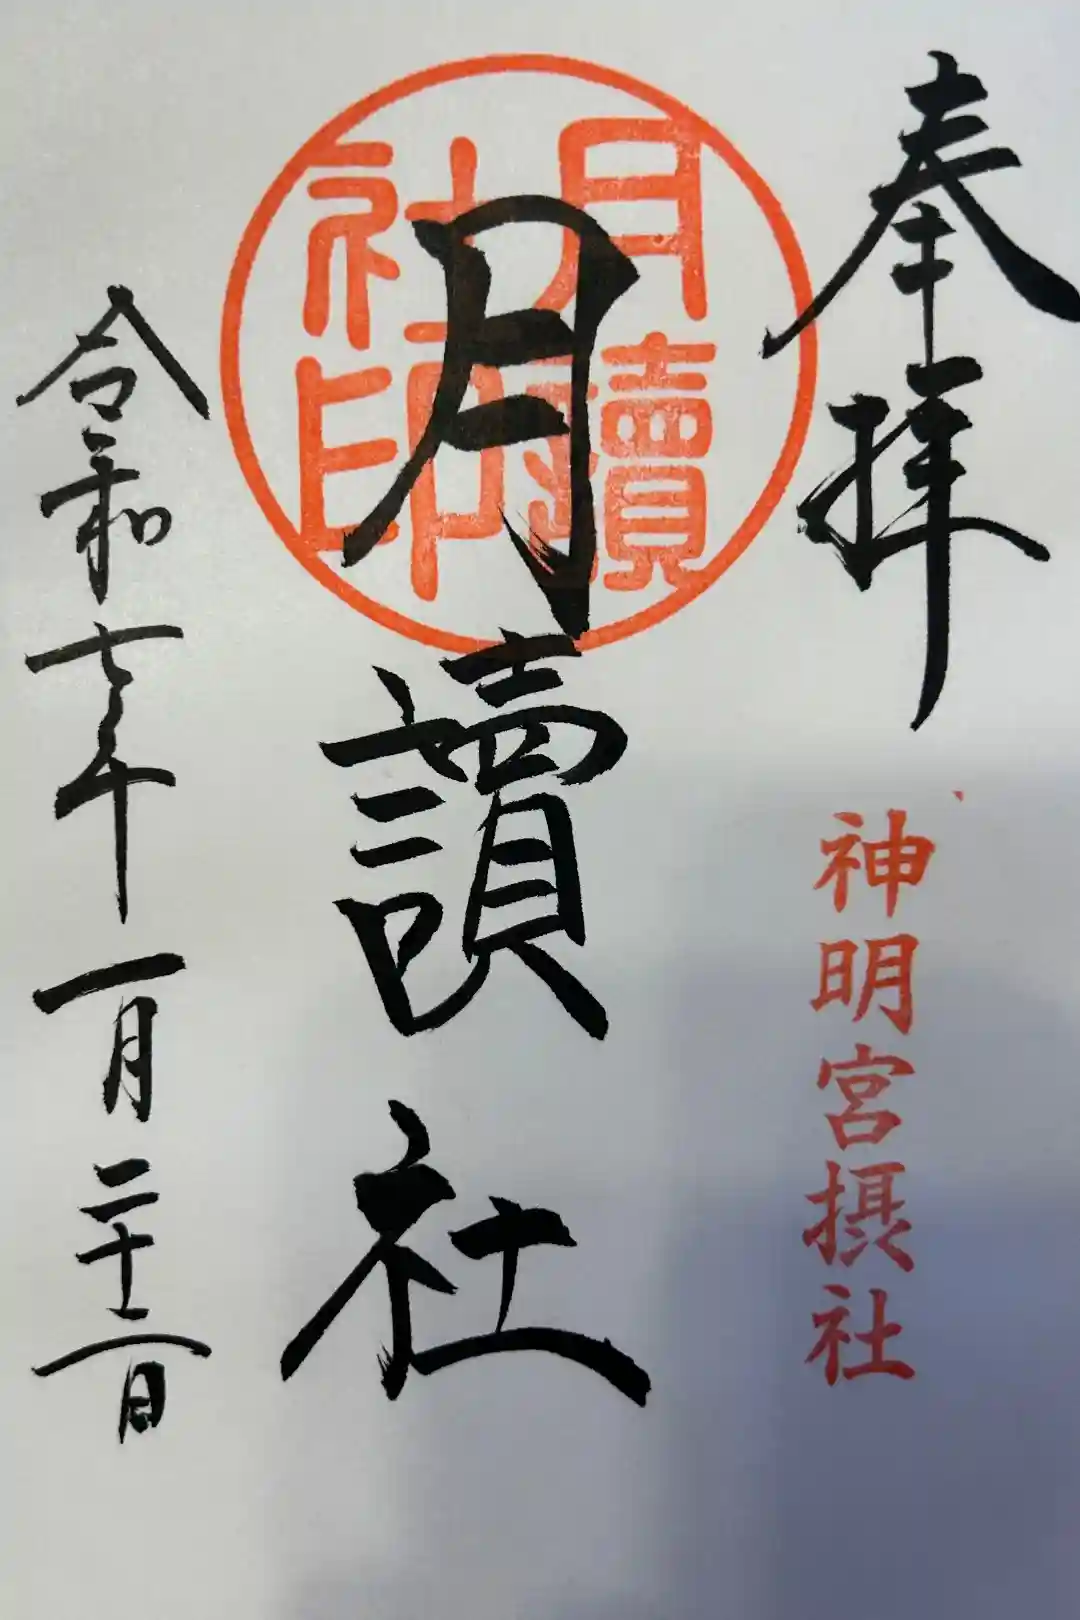 奉拝
神明宮摂社
月讀社印
月讀社
令和七年一月二十二日